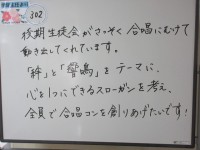 302
後期生徒会がさっそく合唱にむけて
動き出してくれています。
「絆」と「響鳴」をテーマに、
心を1つにできるスローガンを考え、
全員で合唱コンを創りあげたいです!